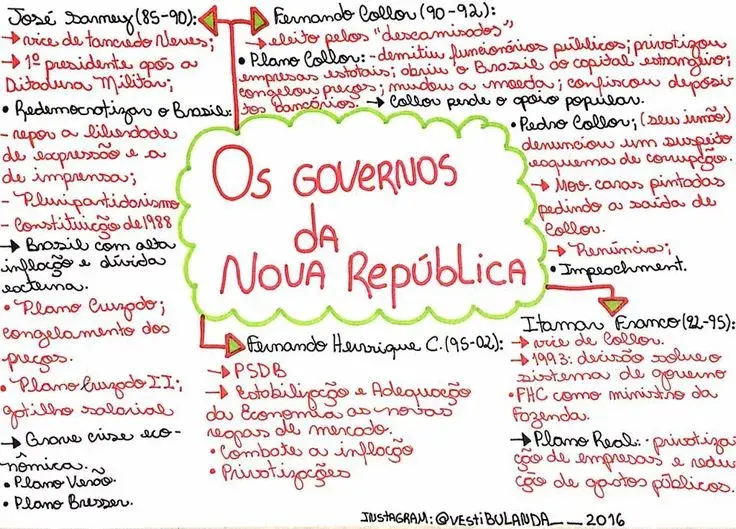 José Sarney (85-90):
→ vice de Tancredo Neves;
→ 1º presidente após a
Ditadura Militar;
• Redemocratizar o Brasil:
- repor a liberdade
de expressão e a
de imprensa;
- Pluripartidarismo
- Constituição de 1988
→ Brasil com alta
inflação e dívida
externa.
• Plano Cruzado;
congelamento dos
preços.
• Plano Cruzado II;
gatilho salarial
→ Grave crise eco-
nômica.
• Plano Verão.
• Plano Bresser.
Fernando Collor (90-92):
→ eleito pelos "descamisados"
• Plano Collor: - demitiu funcionários públicos; privatizou
empresas estatais; abriu o Brasil ao capital estrangeiro;
congelou preços; mudou a moeda; confiscou depósi-
tos bancários. → Collor perde o apoio popular.
• Pedro Collor; (seu irmão)
denunciou um suspeito
esquema de corrupção.
→ Mov. caras pintadas
pedindo a saída de
Collor.
→ Renúncia;
• Impeachment.
OS GOVERNOS
DA
NOVA REPÚBLICA
Itamar Franco (92-95):
→ vice de Collor.
→ 1993: decisão sobre o
sistema de governo
• FHC como ministro da
Fazenda.
→ Plano Real: • privatiza
ção de empresas e redu
ção de gastos públicos.
Fernando Henrique C. (95-02):
→ PSDB
→ Estabilização e Adequação
da Economia as novas
regras de mercado.
• Combate a inflação
• Privatizações
INSTAGRAM: @VESTIBULANDA__ 2016